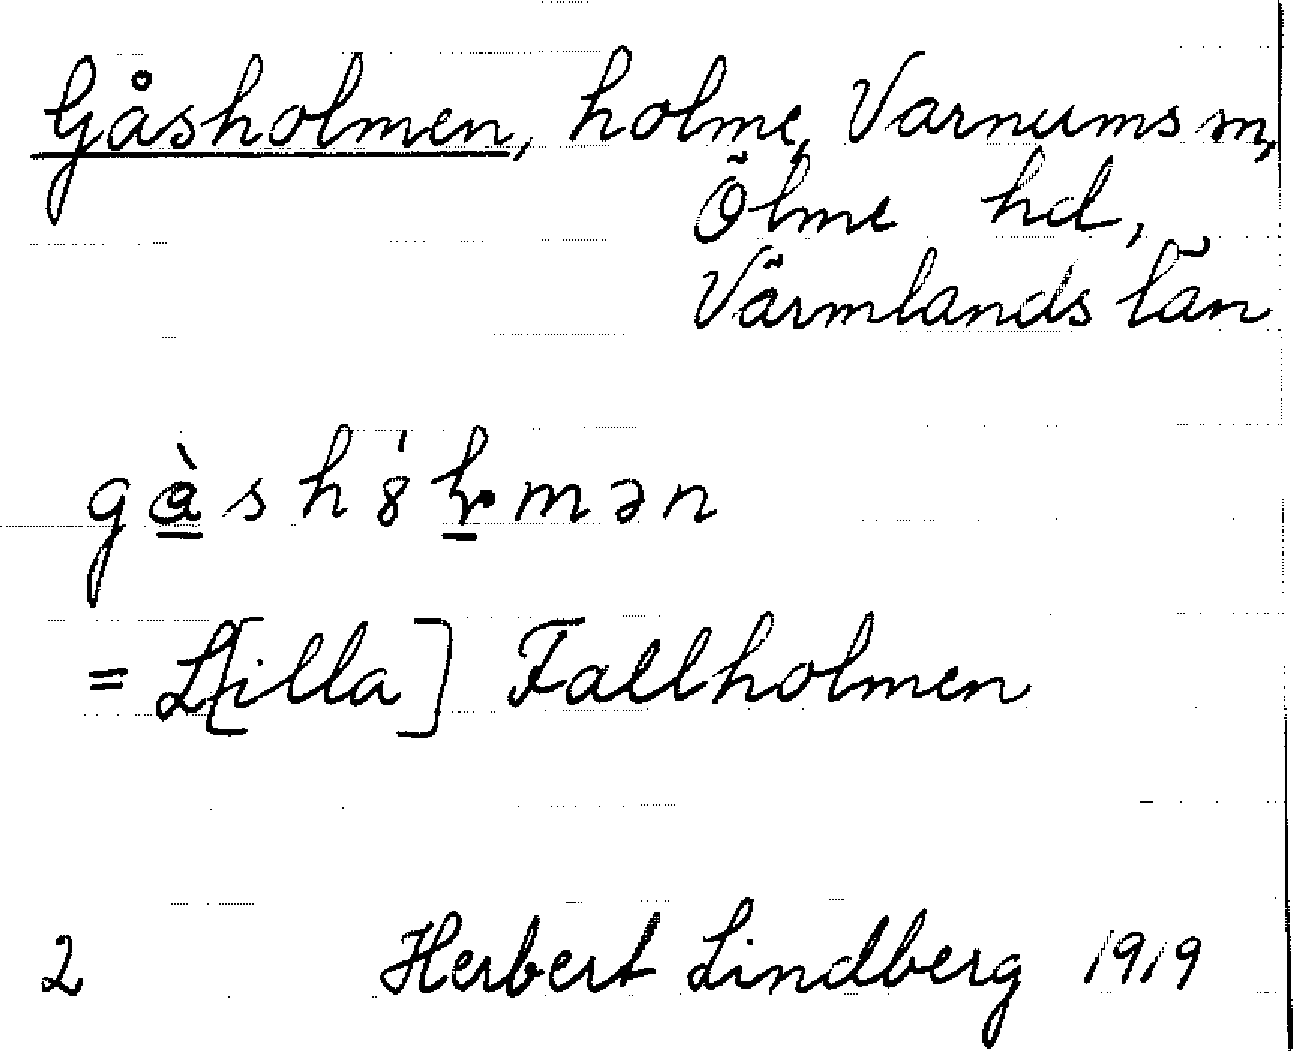 Gåsholmen, holme, Varnums sn,
Ölme hd,
Värmlands län
= L[illa] Fallholmen
2 Herbert Lindberg 1919